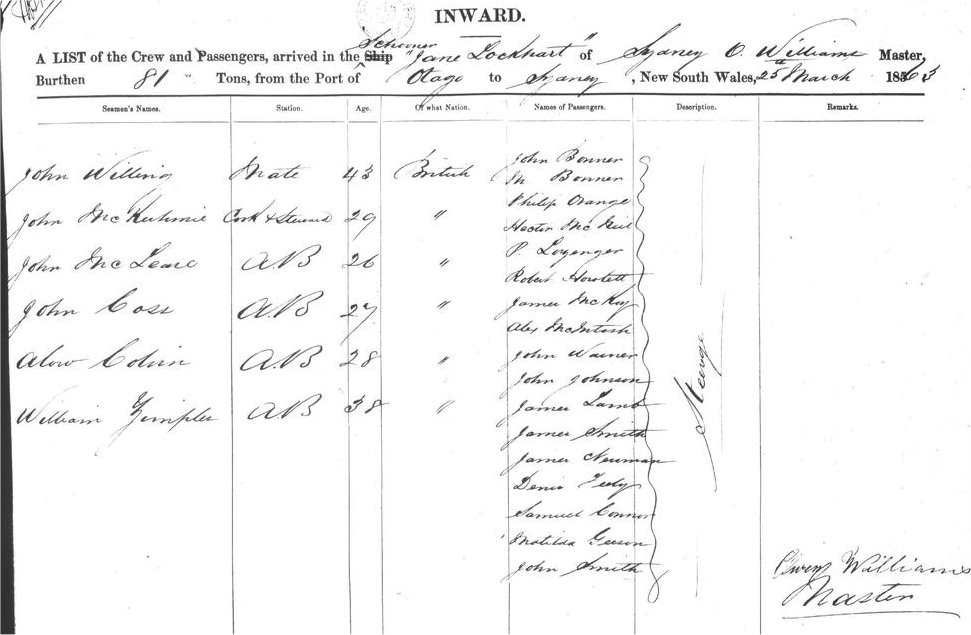 INWARD.
Schooner
A LIST of the Crew and Passengers, arrived in the Ship "Jane Lockhart" of Sydney O. Williams Master,
Burthen 81 Tons, from the Port of Otago to Sydney, New South Wales, 25th March 1863
Seamen's Names. Station. Age. Of what Nation. Names of Passengers. Description. Remarks.
John Bonner
John Willing Mate 43 British M Bonner
Philip Orange
John Cook & Steward 29 " Hector McNeil
P.
John McLeare AB 26 " Robert Howlett
John Coss A.B 27 " James McKay
Alex McIntosh
Colvin A.B 28 " John Warner
John Johnson
William AB 38 " James Lamb
James Smith
James Neuman
Denis
Samuel Connor
Matilda Geeson
John Smith
Steerage
Owen Williams
Master